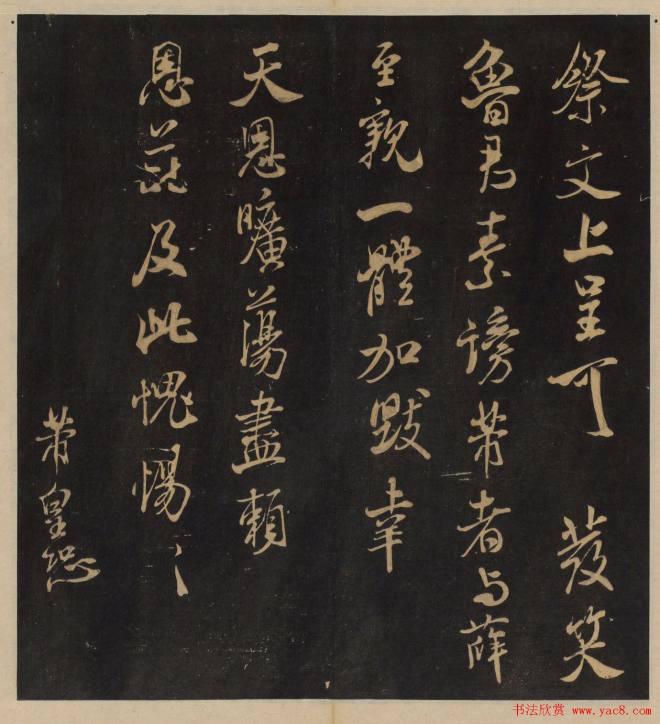 祭文上呈可 發笑
魯君素謗芾者与薛
至親一體加毀幸
天恩曠蕩盡賴
恩芘及此愧惕〻
芾皇恐
书法欣赏 www.yac8.com